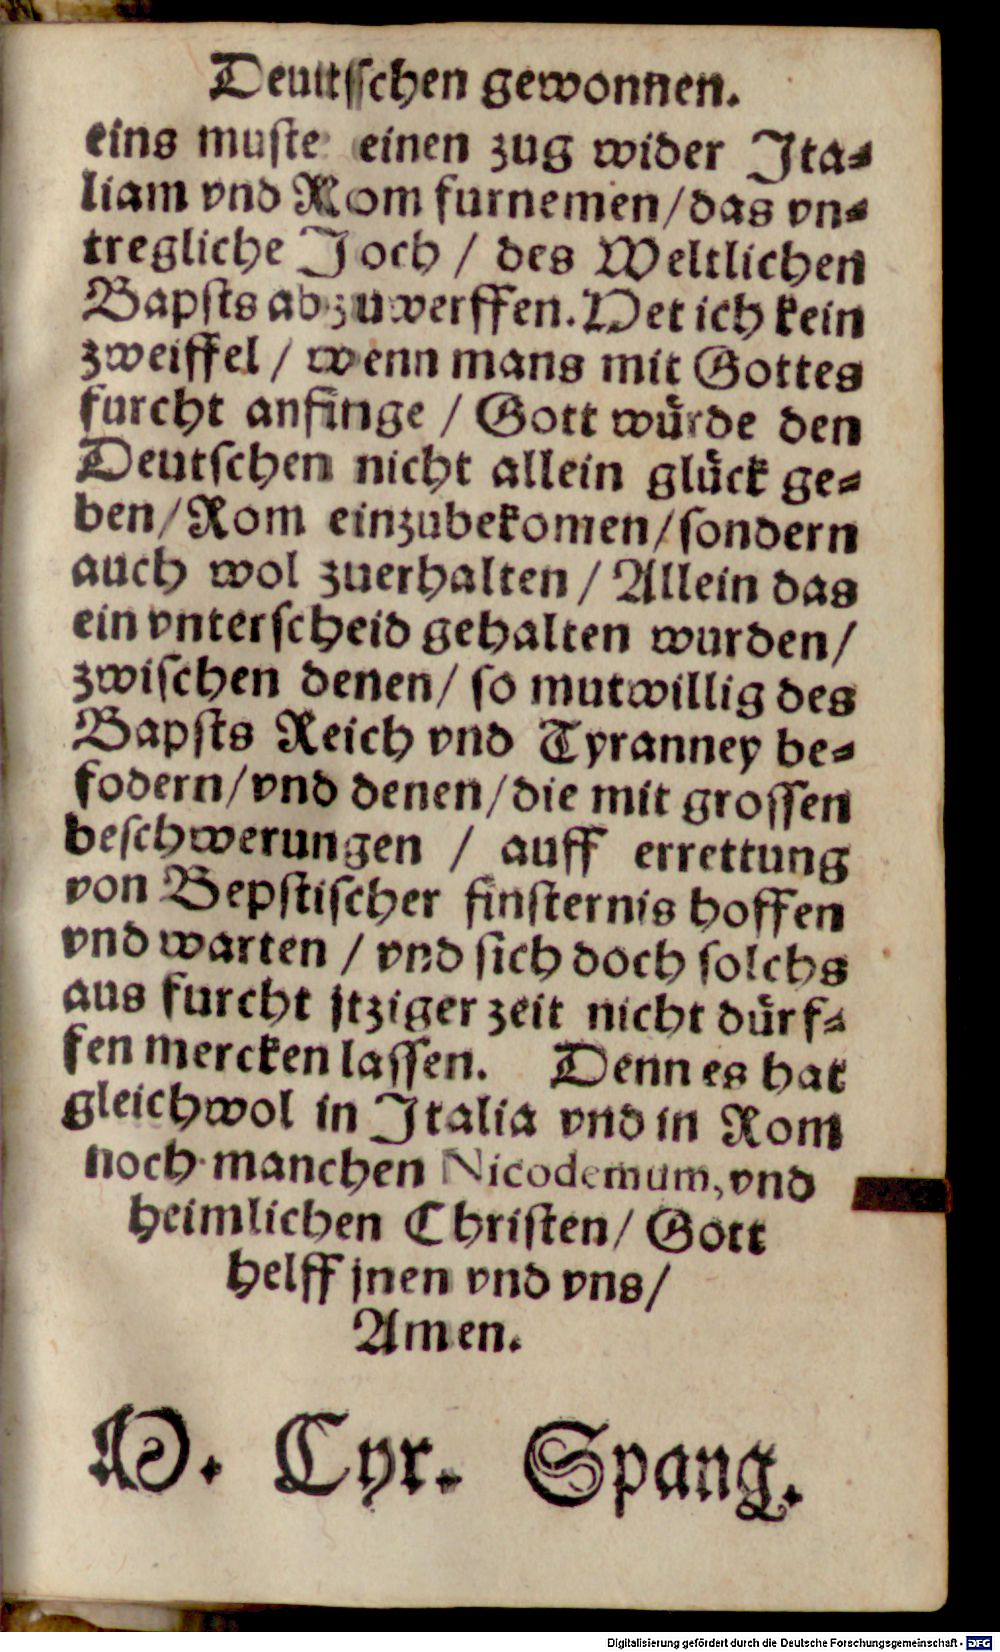 Deuttſſchen gewonnen.
eins muſte einen zug wider Jta⸗
liam vnd Rom furnemen/das vn⸗
tregliche Joch / des Weltlichen
Bapſts abzuwerffen. Het ich kein
zweiffel / wenn mans mit Gottes
furcht anfinge / Gott wuͤrde den
Deutſchen nicht allein gluͤck ge⸗
ben/Rom einzubekomen/ſondern
auch wol zuerhalten / Allein das
ein vnterſcheid gehalten wurden/
zwiſchen denen/ ſo mutwillig des
Bapſts Reich vnd Tyranney be⸗
fodern/vnd denen/die mit groſſen
beſchwerungen / auff errettung
von Bepſtiſcher finſternis hoffen
vnd warten / vnd ſich doch ſolchs
aus furcht jtziger zeit nicht duͤrf⸗
fen mercken laſſen. Denn es hat
gleichwol in Jtalia vnd in Rom
noch manchen Nicodemum, vnd
heimlichen Chriſten/ Gott
helff jnen vnd vns/
Amen.
M. Cyr. Spang.
Digitalisierung gefördert durch die Deutsche Forschungsgemeinschaft - DFG